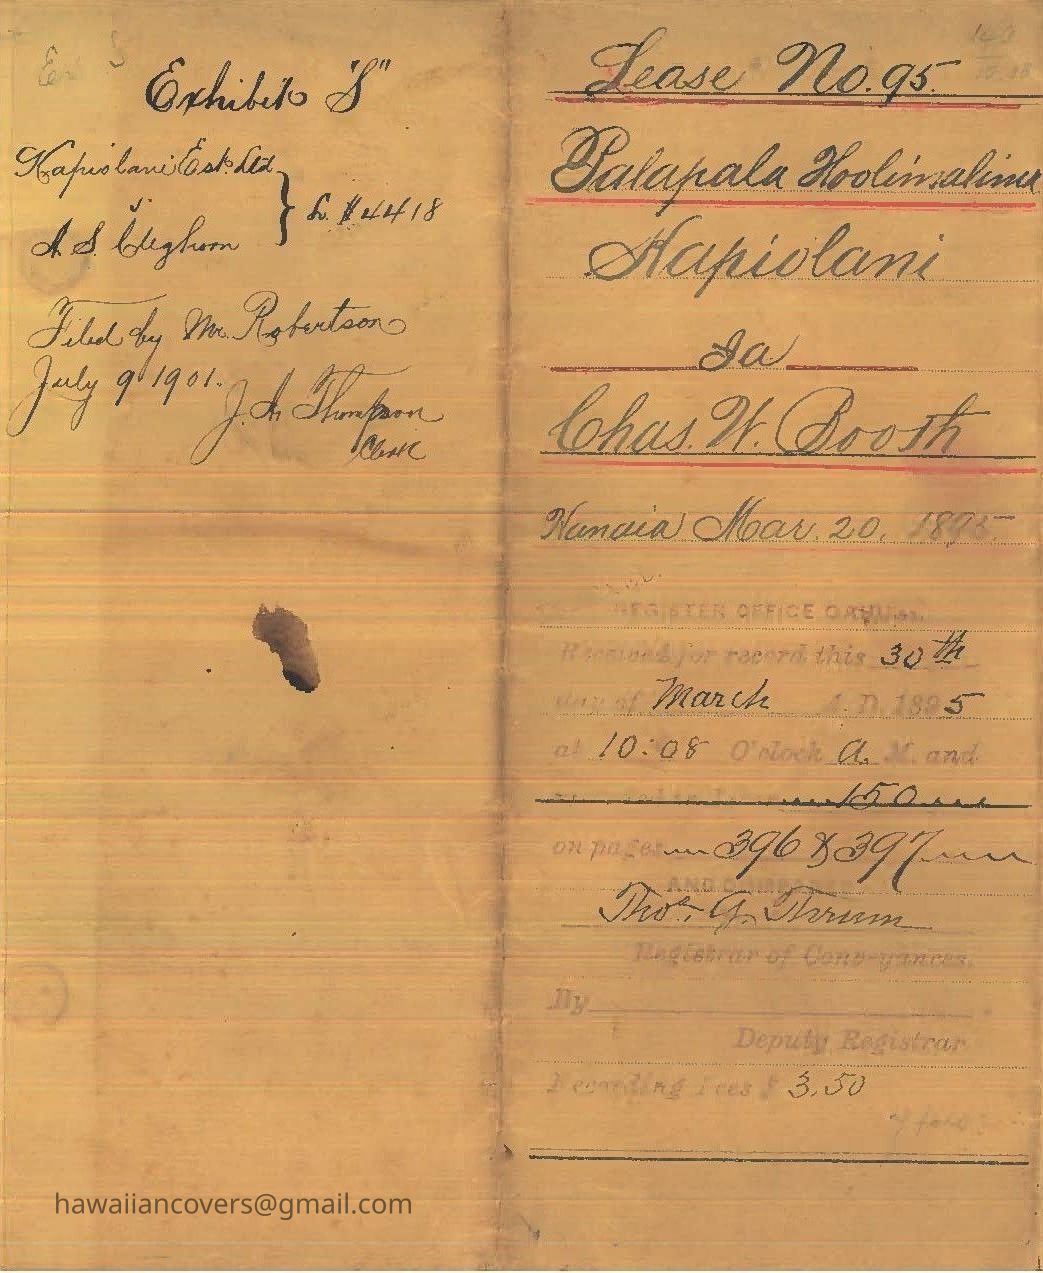 Exhibit "S"
Kapiolani Est. Ltd
v.
A. S. Cleghorn
} L. # 4418
Filed by Mr. Robertson
July 9 1901.
J. A. Thompson
Clerk
Lease No. 95.
Palapala Hoolimalima
Kapiolani
Ia
Chas. W. Booth
Hanaia Mar. 20, 1895
REGISTER OFFICE OAHU
Received for record this 30th
day of March A. D. 1895
at 10:08 O'clock A. M. and
150
on pages 396 & 397
AND COMPARED
Thos. G. Thrum
Registrar of Conveyances.
By
Deputy Registrar
Recording Fees $ 3.50
hawaiiancovers@gmail.com